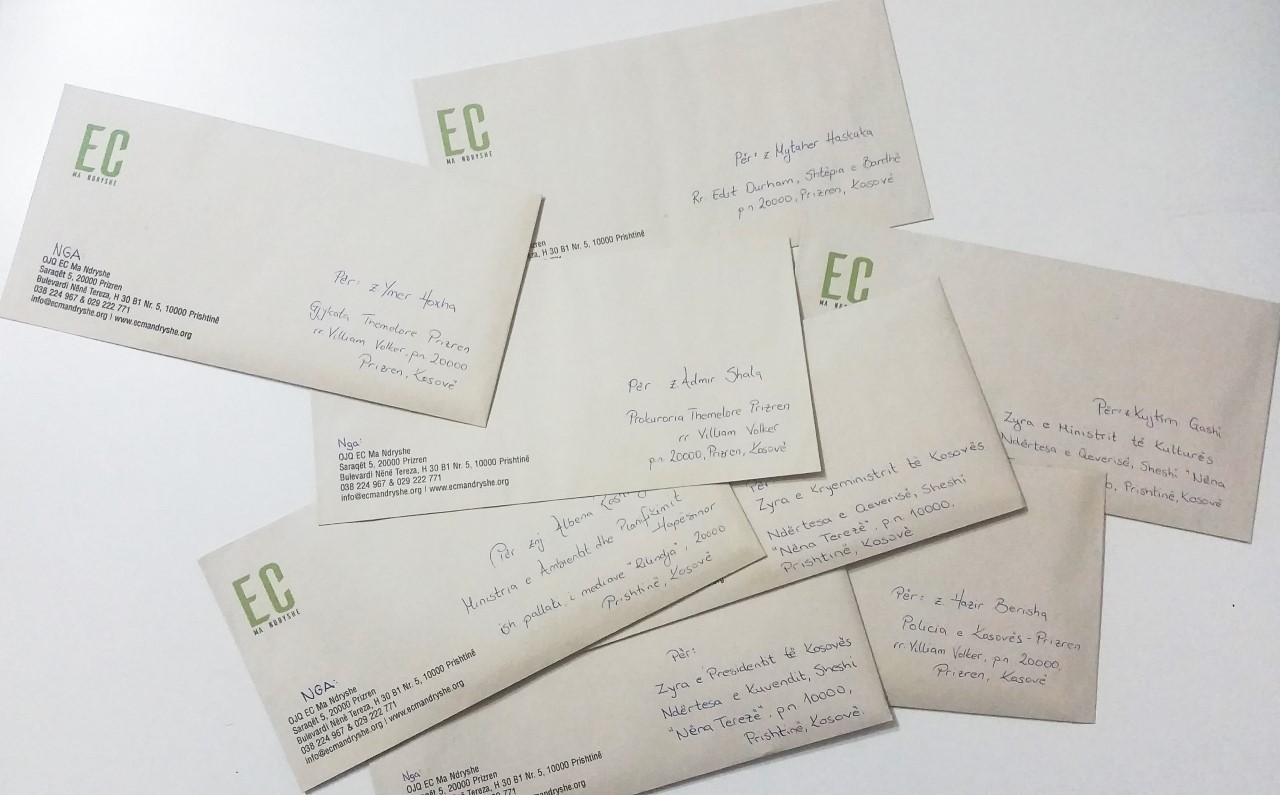 EC
MA NDRYSHE
NGA
OJQ EC Ma Ndryshe
Saraqët 5, 20000 Prizren
Bulevardi Nënë Tereza, H 30 B1 Nr. 5, 10000 Prishtinë
038 224 967 & 029 222 771
info@ecmandryshe.org | www.ecmandryshe.org
Për: z Ymer Hoxha
Gjykata Themelore Prizren
rr. Villiam Volker, pn 20000
Prizren, Kosovë
EC
MA NDRYSHE
Për: z Mytaher Haskuka
Rr. Edit Durham, Shtëpia e Bardhë
pn 20000, Prizren, Kosovë
H 30 B1 Nr. 5, 10000 Prishtinë
Për z. Admir Shala
Prokuroria Themelore Prizren
rr Villiam Volker
pn 20000, Prizren, Kosovë
Nga:
OJQ EC Ma Ndryshe
Saraqët 5, 20000 Prizren
Bulevardi Nënë Tereza, H 30 B1 Nr. 5, 10000 Prishtinë
038 224 967 & 029 222 771
info@ecmandryshe.org | www.ecmandryshe.org
EC
MA
Për: z Kujtim Gashi
Zyra e Ministrit të Kulturës
Ndërtesa e Qeverisë, Sheshi "Nëna
Prishtinë, Kosovë
Për:
Zyra e Kryeministrit të Kosovës
Ndërtesa e Qeverisë, Sheshi
"Nëna Terezë", pn 10000,
Prishtinë, Kosovë
EC
MA NDRYSHE
Për znj Albena
Ministria e Ambientit dhe Planifikimit
Hapësinor
ish pallati i mediave "Rilindja", 20000
Prishtinë, Kosovë
NGA:
OJQ EC Ma Ndryshe
Saraqët 5, 20000 Prizren
Bulevardi Nënë Tereza, H 30 B1 Nr. 5, 10000 Prishtinë
038 224 967 & 029 222 771
info@ecmandryshe.org | www.ecmandryshe.org
Për: z. Hazir Berisha
Policia e Kosovës - Prizren
rr. Villiam Volker, pn 20000,
Prizren, Kosovë
Për:
Zyra e Presidentit të Kosovës
Ndërtesa e Kuvendit, Sheshi
"Nëna Terezë", pn 10000,
Prishtinë, Kosovë.
Nga:
OJQ EC Ma Ndryshe
Saraqët 5, 20000 Prizren
H 30 B1 Nr. 5, 10000 Prishtinë
www.ecmandryshe.org